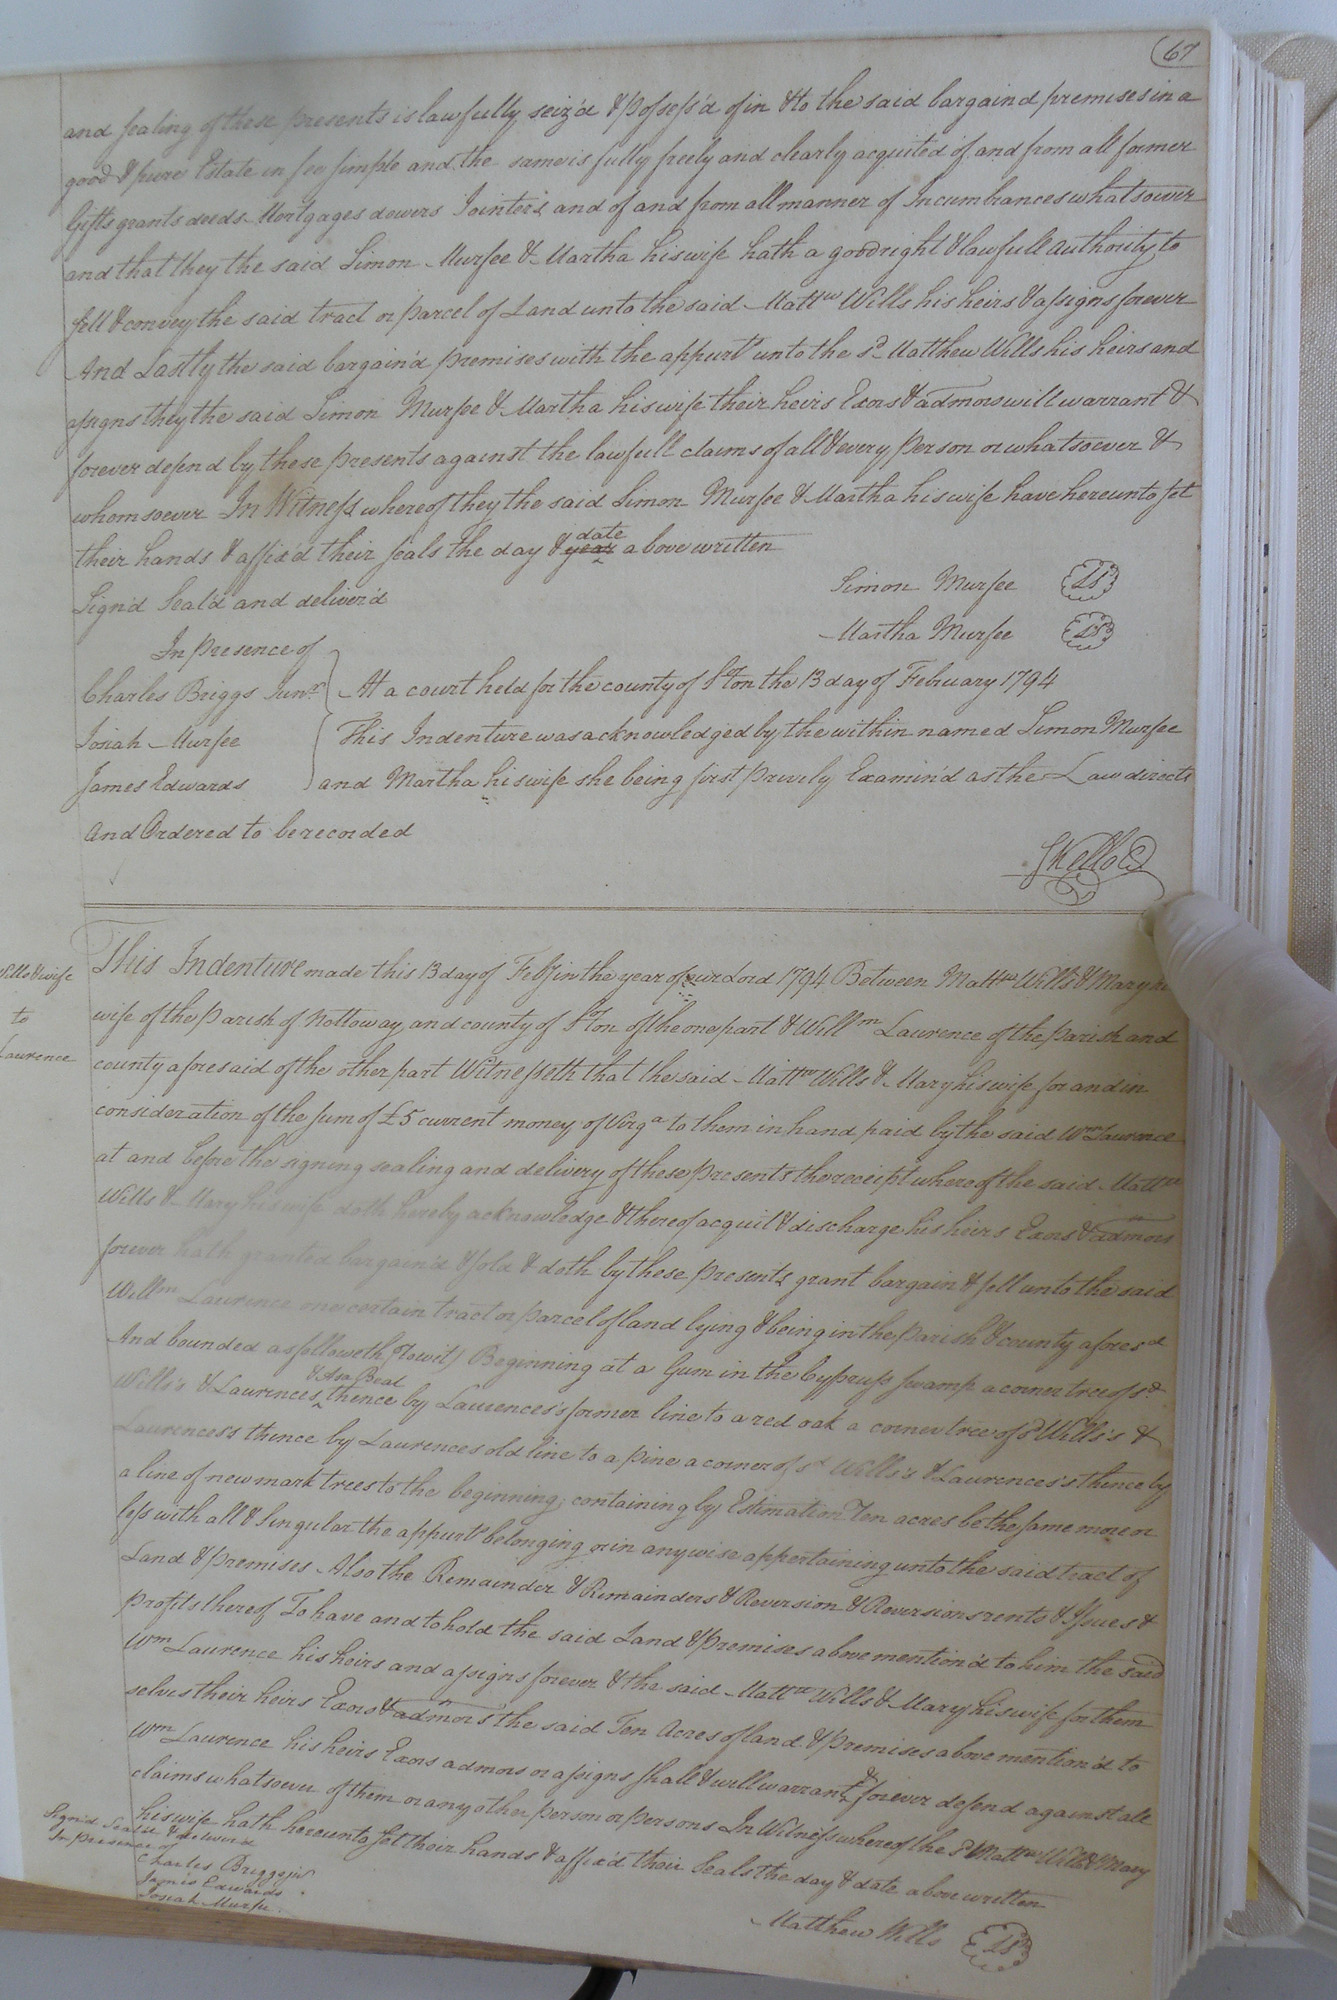 67
and sealing of these presents is lawfully seiz'd & possess'd of in & to the said bargaind premises in a
good & pure Estate in fee simple and the same is fully freely and clearly acquited of and from all former
Gifts grants deeds Mortgages dowers Jointers and of and from all manner of Incumbrances whatsoever
and that they the said Simon Murfee & Martha his wife hath a good right & lawfull authority to
sell & convey the said tract or parcel of Land unto the said Mattw Wills his heirs & assigns forever
And Lastly the said bargain'd premises with the appurts unto the sd Matthew Wills his heirs and
assigns they the said Simon Murfee & Martha his wife their heirs Exors & admors will warrant &
forever defend by these presents against the lawfull claims of all & every person or whatsoever &
whomsoever In Witness whereof they the said Simon Murfee & Martha his wife have hereunto set
their hands & affix'd their seals the day & year date above written
Sign'd Seal'd and deliver'd
Simon Murfee LS
In presence of
Martha Murfee LS
Charles Briggs Junr. At a court held for the county of Sºton the 13 day of February 1794
Josiah Murfee This Indenture was acknowledged by the within named Simon Murfee
James Edwards and Martha his wife she being first privily Examin'd as the Law directs
And Ordered to be recorded
SKello C
Wills & wife
to
Laurence
This Indenture made this 13 day of Feby in the year of our Lord 1794 Between Mattw Wills & Mary his
wife of the Parish of Nottoway and county of Sºton of the one part & Willm Laurence of the parish and
county aforesaid of the other part Witnesseth that the said Mattw Wills & Mary his wife for and in
consideration of the sum of £5 current money of Virga to them in hand paid by the said Wm Laurence
at and before the signing sealing and delivery of these presents the receipt whereof the said Mattw
Wills & Mary his wife doth hereby acknowledge & thereof acquit & discharge his heirs Exors & admors
forever hath granted bargain'd & sold & doth by these presents grant bargain & sell unto the said
Willm Laurence one certain tract or parcel of land lying & being in the parish & county aforesd
And bounded as followeth (towit) Beginning at a Gum in the Cyprass swamp a corner tree of sd
Wills's & Laurences & Asa Beal thence by Laurences's former line to a red oak a corner tree of sd Wills's &
Laurences's thence by Laurences old line to a pine a corner of sd Wills's & Laurences's thence by
a line of new mark trees to the beginning, containing by Estimation Ten acres be the same more or
less with all & Singular the appurts belonging or in any wise appertaining unto the said tract of
Land & premises Also the Remainder & Remainders & Reversion & Reversions rents & Issues &
profits thereof To have and to hold the said Land & premises above mention'd to him the said
Wm Laurence his heirs and assigns forever & the said Mattw Wills & Mary his wife for them
selves their heirs Exors & admors the said Ten Acres of land & premises above mention'd to
Wm Laurence his heirs Exors admors or assigns shall & will warrant & forever defend against all
claims whatsoever of them or any other person or persons In Witness whereof the sd Mattw Wills & Mary
his wife hath hereunto set their hands & affix'd their Seals the day & date above written
Sign'd Seal'd & deliver'd
In presence of
Charles Briggs jr
James Edwards
Josiah Murfee
Matthew Wills LS